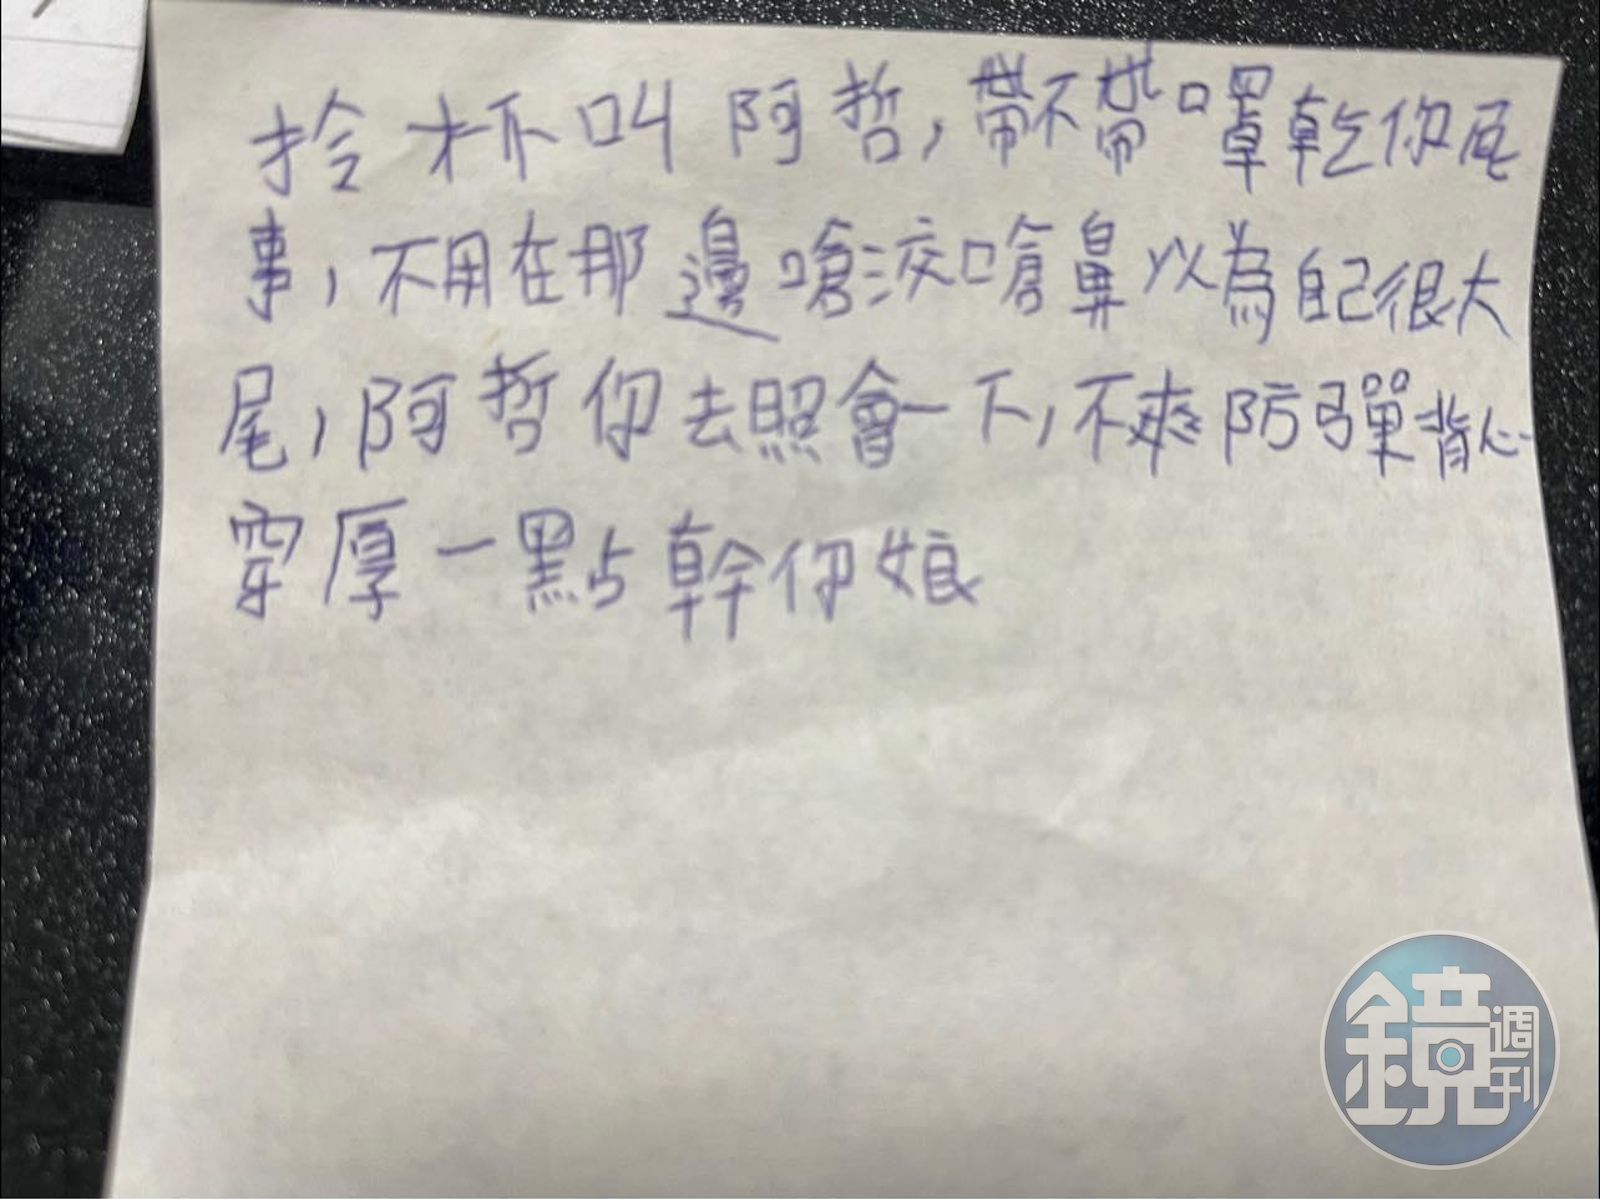 拎杯叫阿哲,帶不帶口罩乾你屁
事,不用在那邊嗆嗆鼻以為自己很大
尾,阿哲你去照會一下,不爽防彈背心
穿厚一點幹你娘
鏡週刊